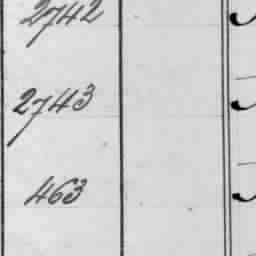 2742
2743
463